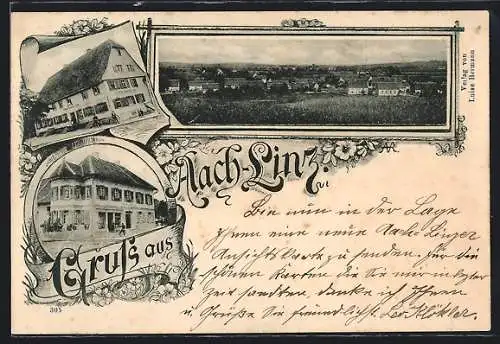 Verlag von
Luise Hermann
Aach-Linz.
Gruß aus
Bin nun in der Lage
Ihnen eine neue Aach-Linzer
Ansichtskarte zu senden. Für die
schönen Karten die Sie mir in letzter
Zeit sandten, danke ich Ihnen
u. Grüße Sie freundlichst. Leo
305